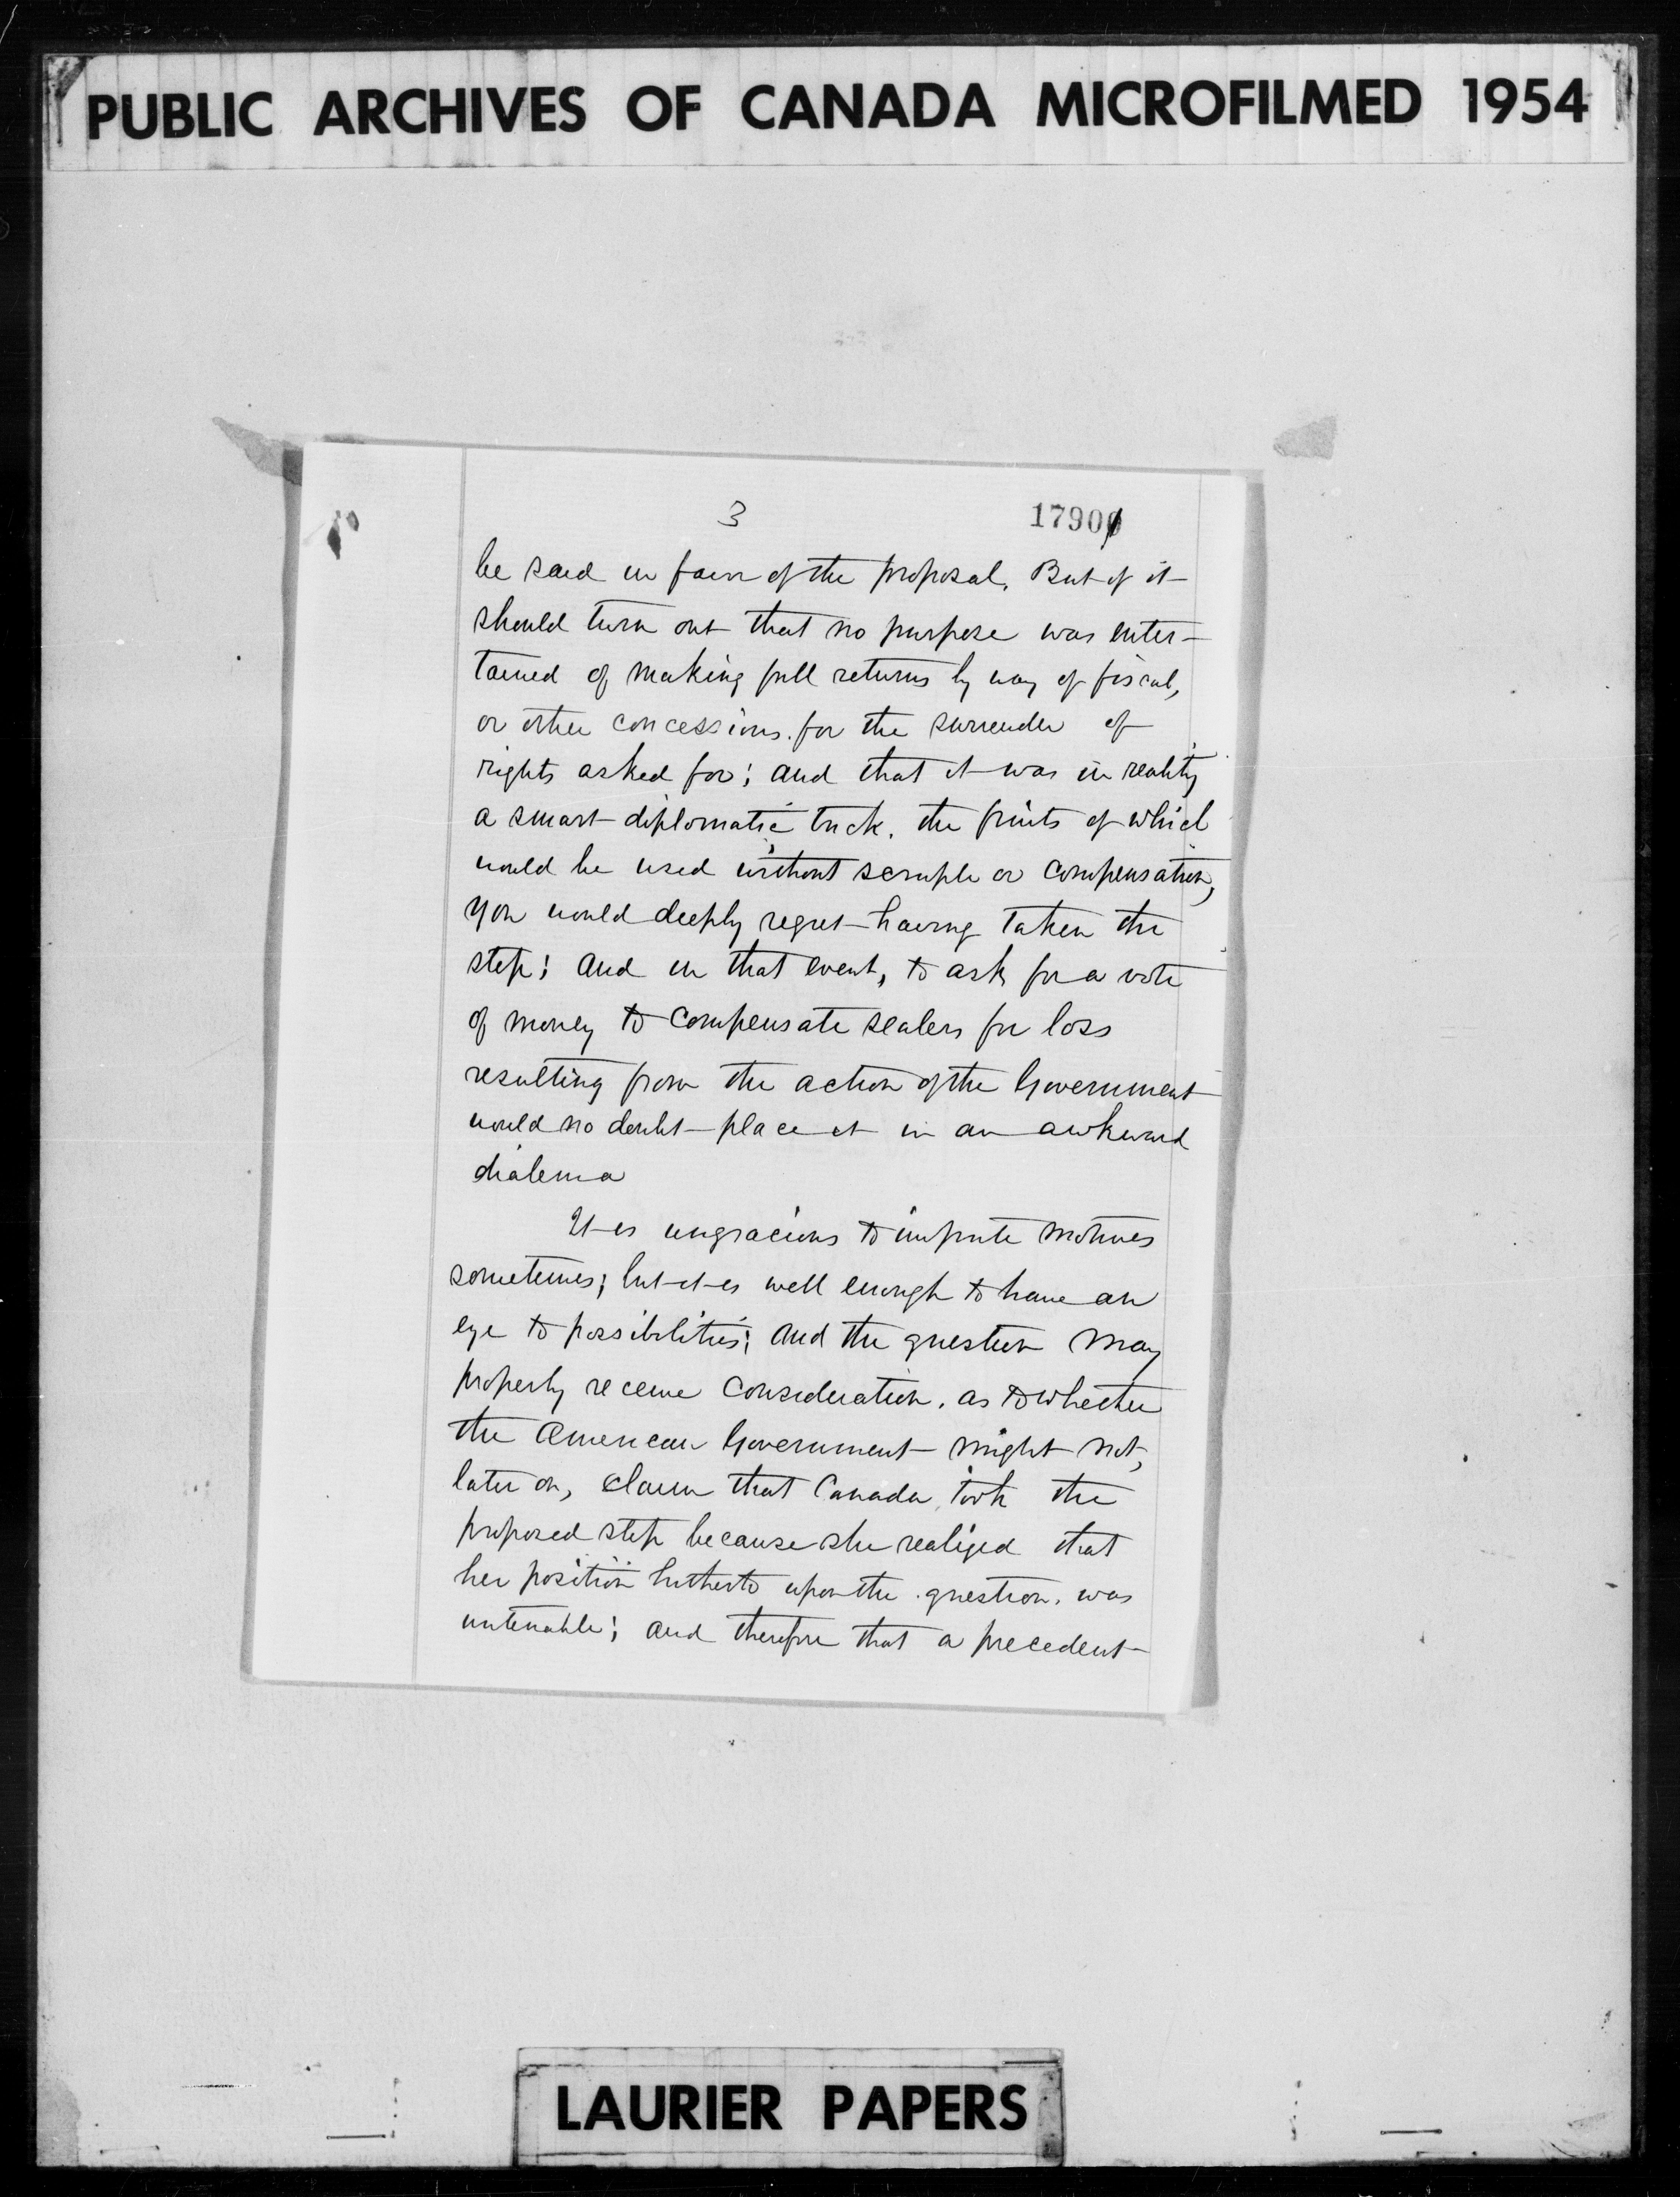 PUBLIC ARCHIVES OF CANADA MICROFILMED 1954
3
17901
be said in favor of the proposal. But if it
should turn out that no purpose was enter-
tained of making full returns by way of fiscal,
or other concessions. for the surrender of
rights asked for; and that it was in reality
a smart diplomatic trick, the fruits of which
would be used without scruple or compensation,
you would deeply regret having taken the
step; and in that event, to ask for a vote
of money to compensate sealers for loss
resulting from the action of the Government
would no doubt place it in an awkward
dialema
It is ungracious to impute motives
sometimes; but it is well enough to have an
eye to possibilities; and the question may
properly receive consideration, as to whether
the American Government might not,
later on, claim that Canada took the
proposed step because she realized that
her position hitherto upon the question, was
untenable; and therefore that a precedent
LAURIER PAPERS